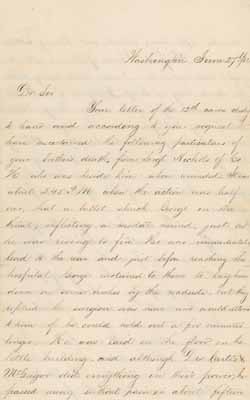 Washington June 27
Dr Sir
Your letter of the 12th came duly
to hand and according to your request I
have ascertained the following particulars of
your brothers death, from Sergt Nichols of Co
He was beside him when wounded
about 2.45 P.M. when the action was half
over, that a bullet which
breast, inflicting a mortal wound just as
he was rising to fire He was immediately
to the rear and just before reaching the
hospital Sergt to them to lay him
down in some by the roadside but they
replied the surgeon was near and would attend
to him if he could hold out a few minutes
longer. He was laid on the floor in the
little building and although Drs Curtis &
McGregor did everything in their power, he
passed away without pain in about fifteen